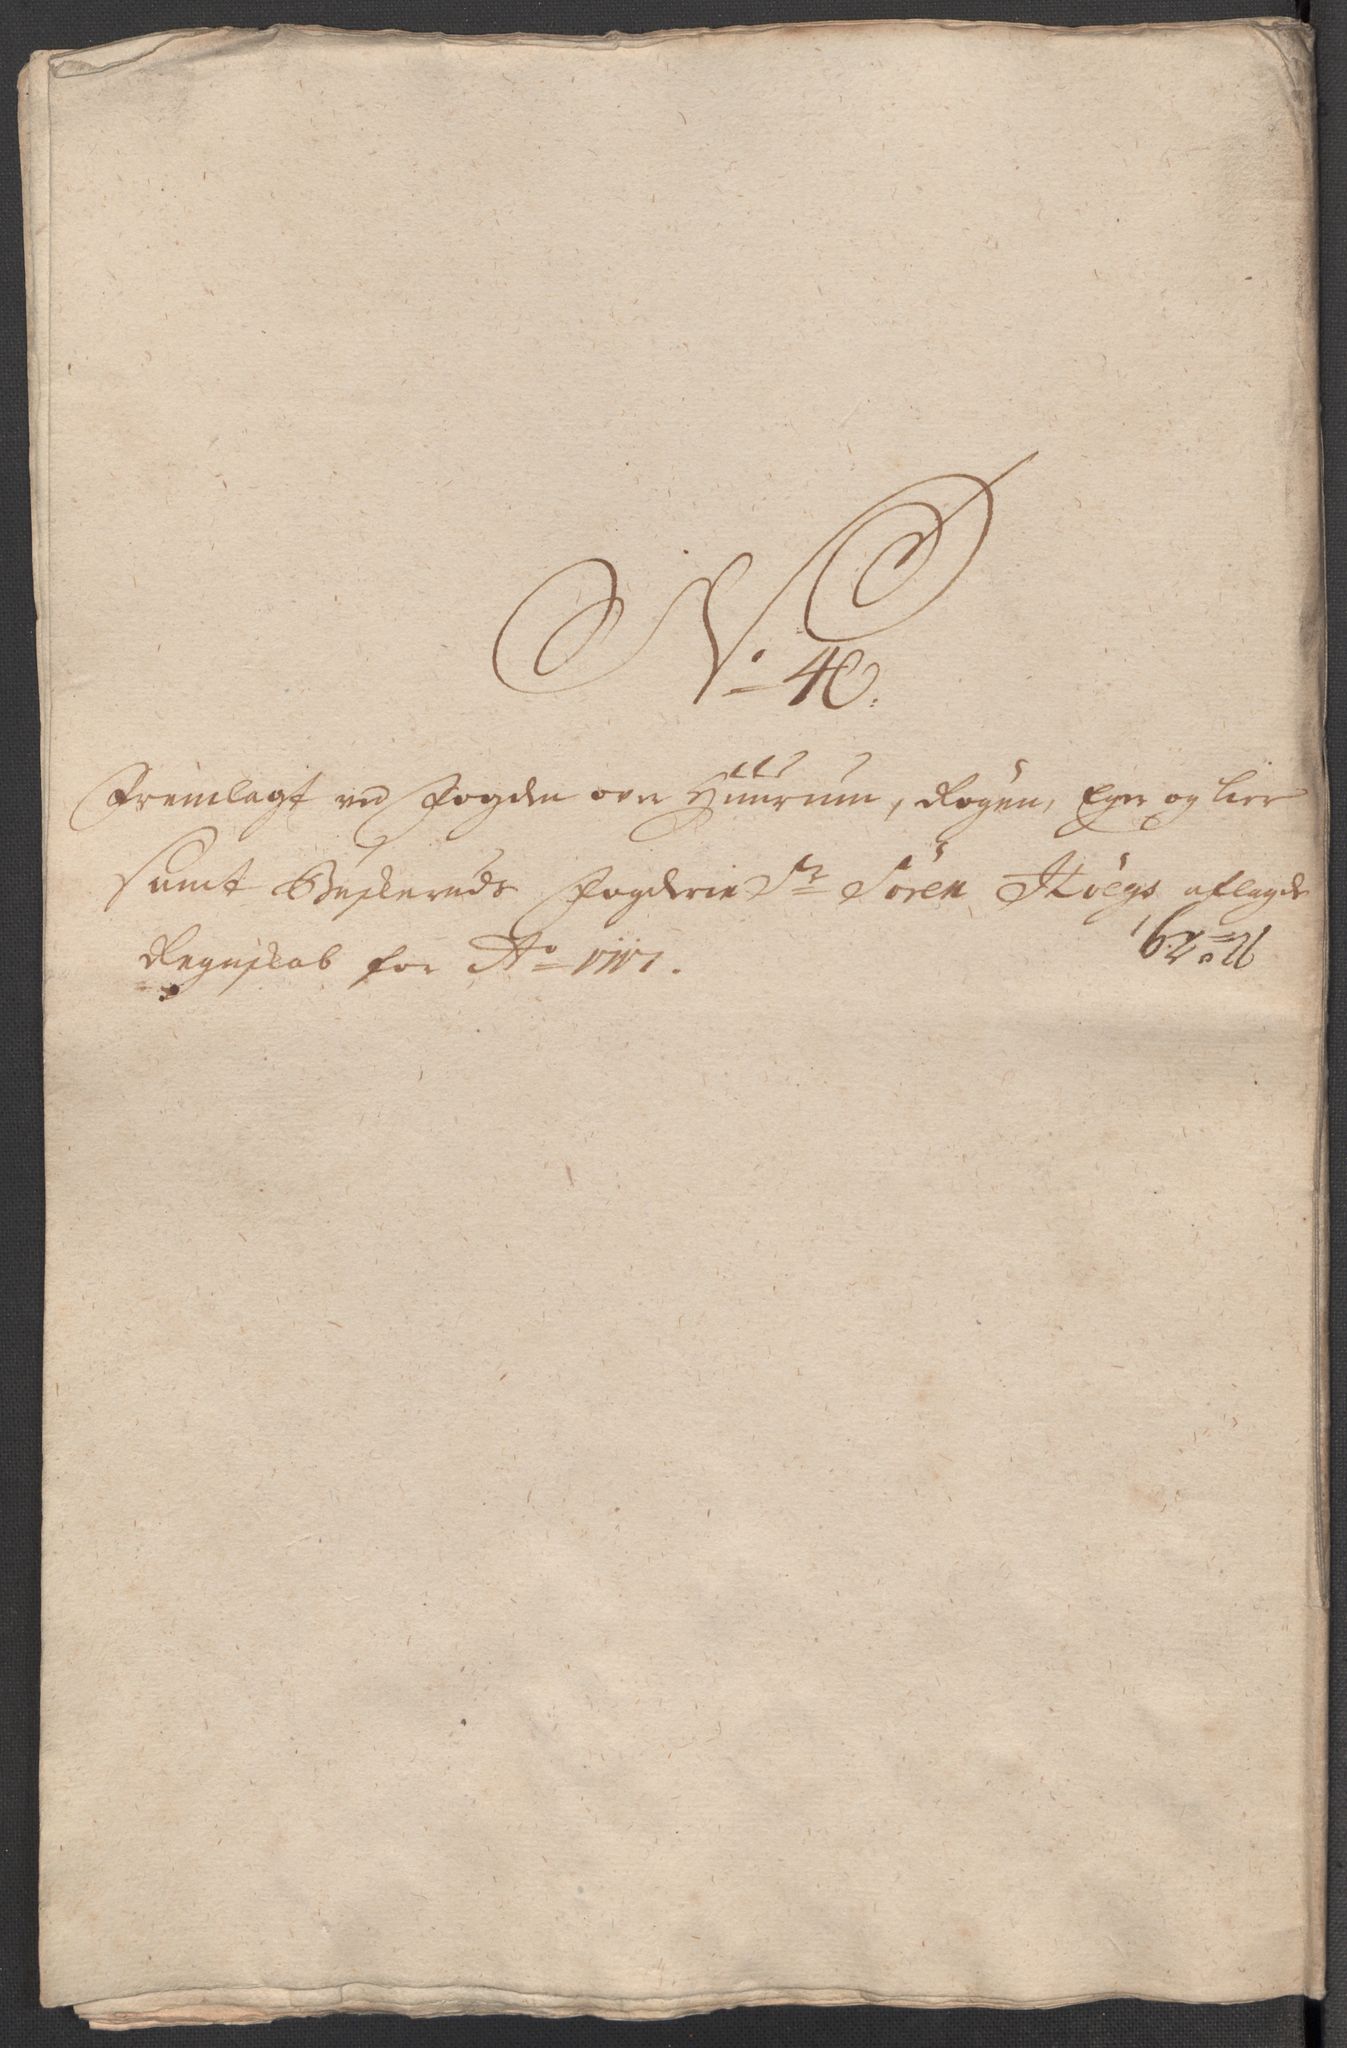 No 40.
Fremlagt ved Fogden over Huurum, Røgen, Eger og Lier
samt Buskeruds Fogderie Sr Sören Höegs aflagde
Regnskab for Ao 1717.